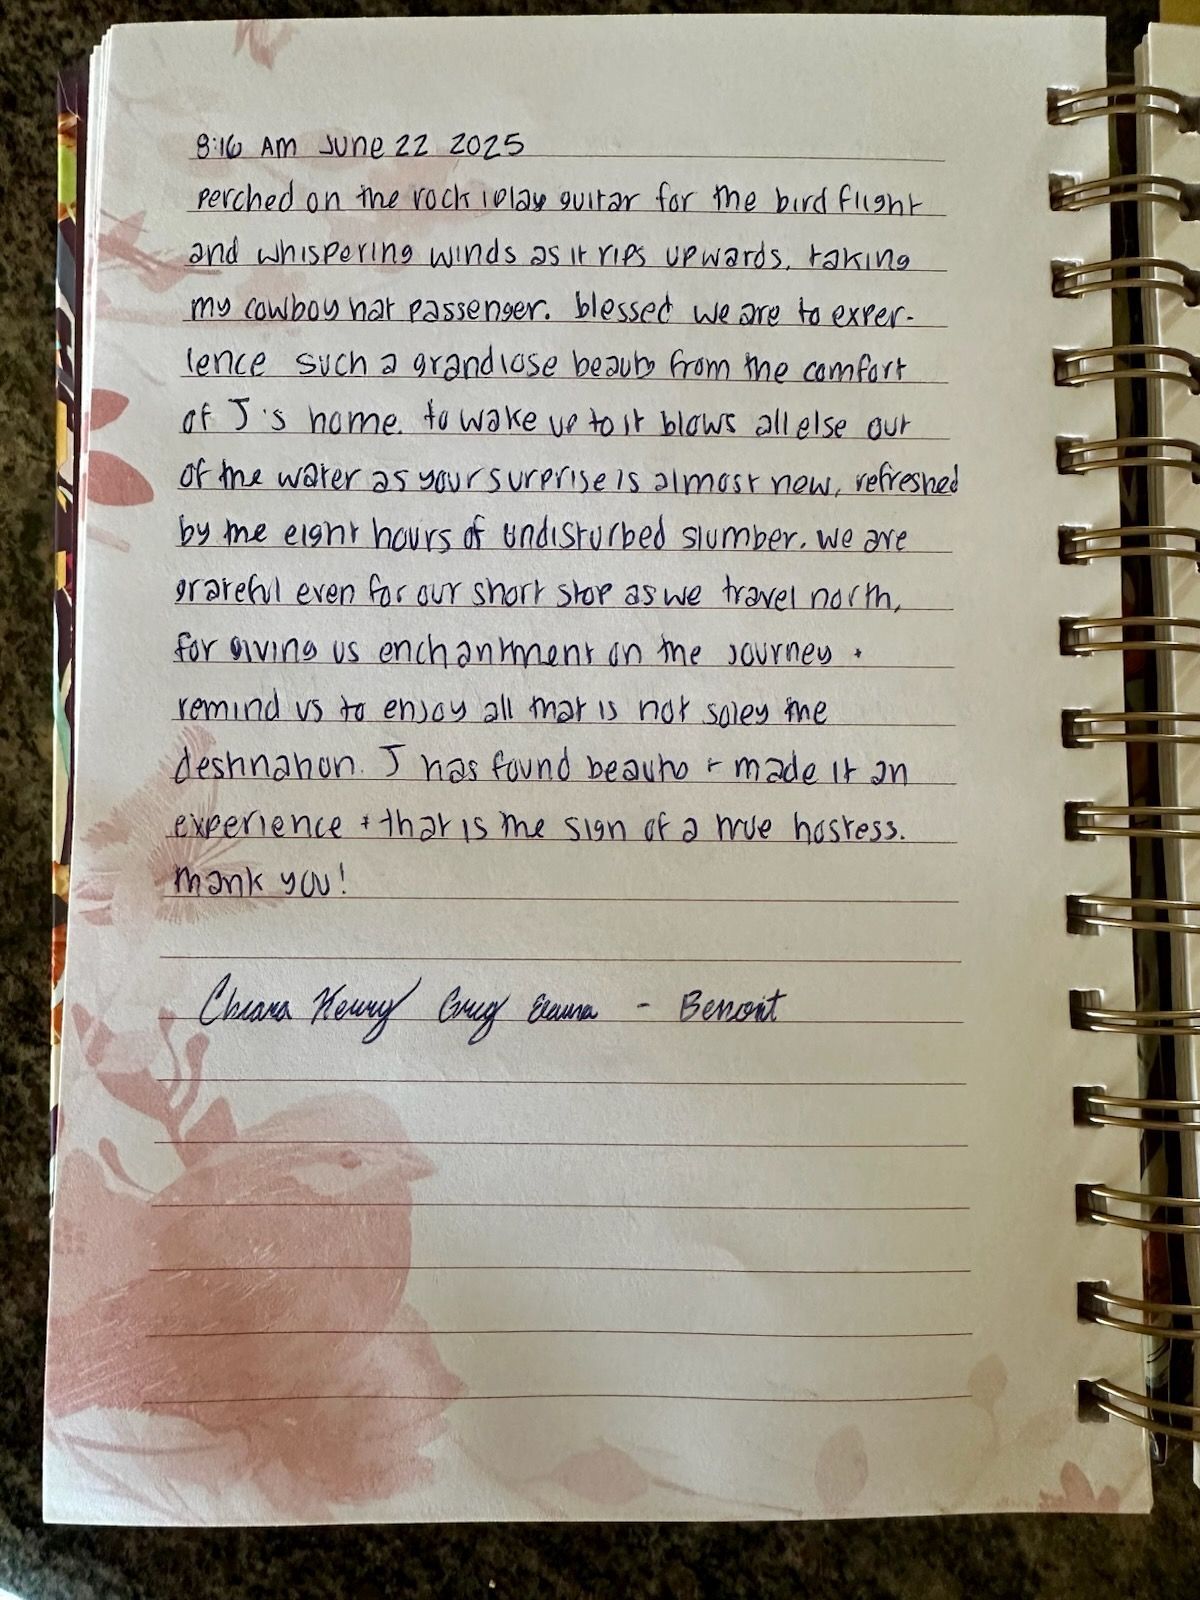 8:16 AM June 22 2025
perched on the rock i play guitar for the bird flight
and whispering winds as it rips upwards, taking
my cowboy hat passenger. blessed we are to exper-
ience such a grandiose beauty from the comfort
of J's home. to wake up to it blows all else out
of the water as your surprise is almost new, refreshed
by the eight hours of undisturbed slumber. we are
grateful even for our short stop as we travel north,
for giving us enchantment on the journey +
remind us to enjoy all that is not soley the
destination. J has found beauty + made it an
experience + that is the sign of a true hostess.
thank you!
Chiara Henry Greg - Benoit